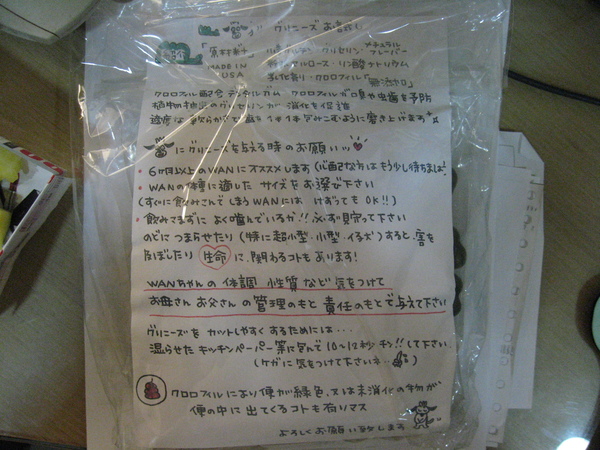 グリニーズ お試し
「原材料」 グルテン・グリセリン・ナチュラルフレーバー
MADE IN USA セルロース・リン酸ナトリウム
乳化剤・クロロフィル「無添加」
クロロフィル配合デンタルガム クロロフィルが口臭や虫歯を予防
植物抽出のグリセリンが消化を促進
適度な軟らかさで歯を1本1本包みこむように磨き上げます
にグリニーズを与える時のお願いッ
・6ヶ月以上のWANにオススメします(心配な方はもう少し待ちましょ)
・WANの体重に適したサイズをお選び下さい
(すぐに飲みこんでしまうWANには けずってもOK!!)
・飲みこまずによく噛んでいるか!!必ず見守って下さい
のどにつまらせたり(特に超小型・小型・子犬)すると、害を
及ぼしたり 生命 に関わるコトもあります!
WANちゃんの体調、性質など気をつけて
お母さんお父さんの管理のもと責任のもとで与えて下さい
グリニーズをカットしやすくするためには・・・
湿らせたキッチンペーパー等に包んで10〜12秒チン!!して下さい
(ケガに気をつけて下さいネ・・)
クロロフィルにより便が緑色、又は未消化の物が
便の中に出てくるコトも有りマス
よろしくお願い致します